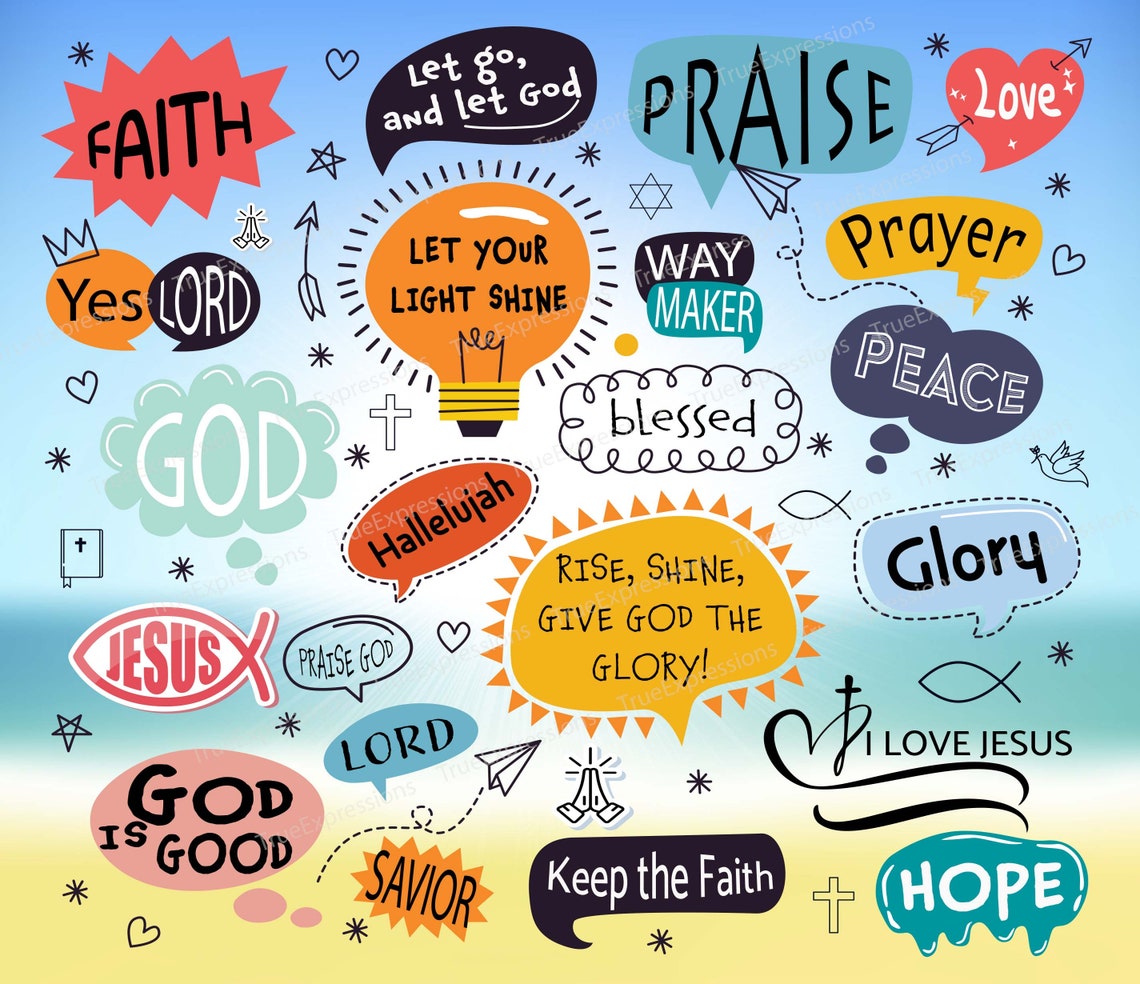 FAITH
Let go,
and let God
PRAISE
Love
LET YOUR
LIGHT SHINE
Prayer
Yes LORD
WAY
MAKER
PEACE
GOD
blessed
Hallelujah
Glory
RISE, SHINE,
GIVE GOD THE
GLORY!
JESUS
PRAISE GOD
LORD
I LOVE JESUS
GOD
IS GOOD
SAVIOR
Keep the Faith
HOPE
TrueExpressions